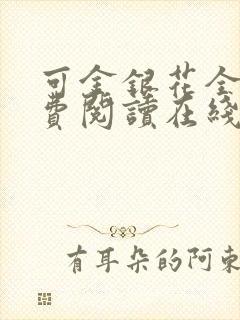 可金銀花全
費閱讀在綫
有耳朵的阿東